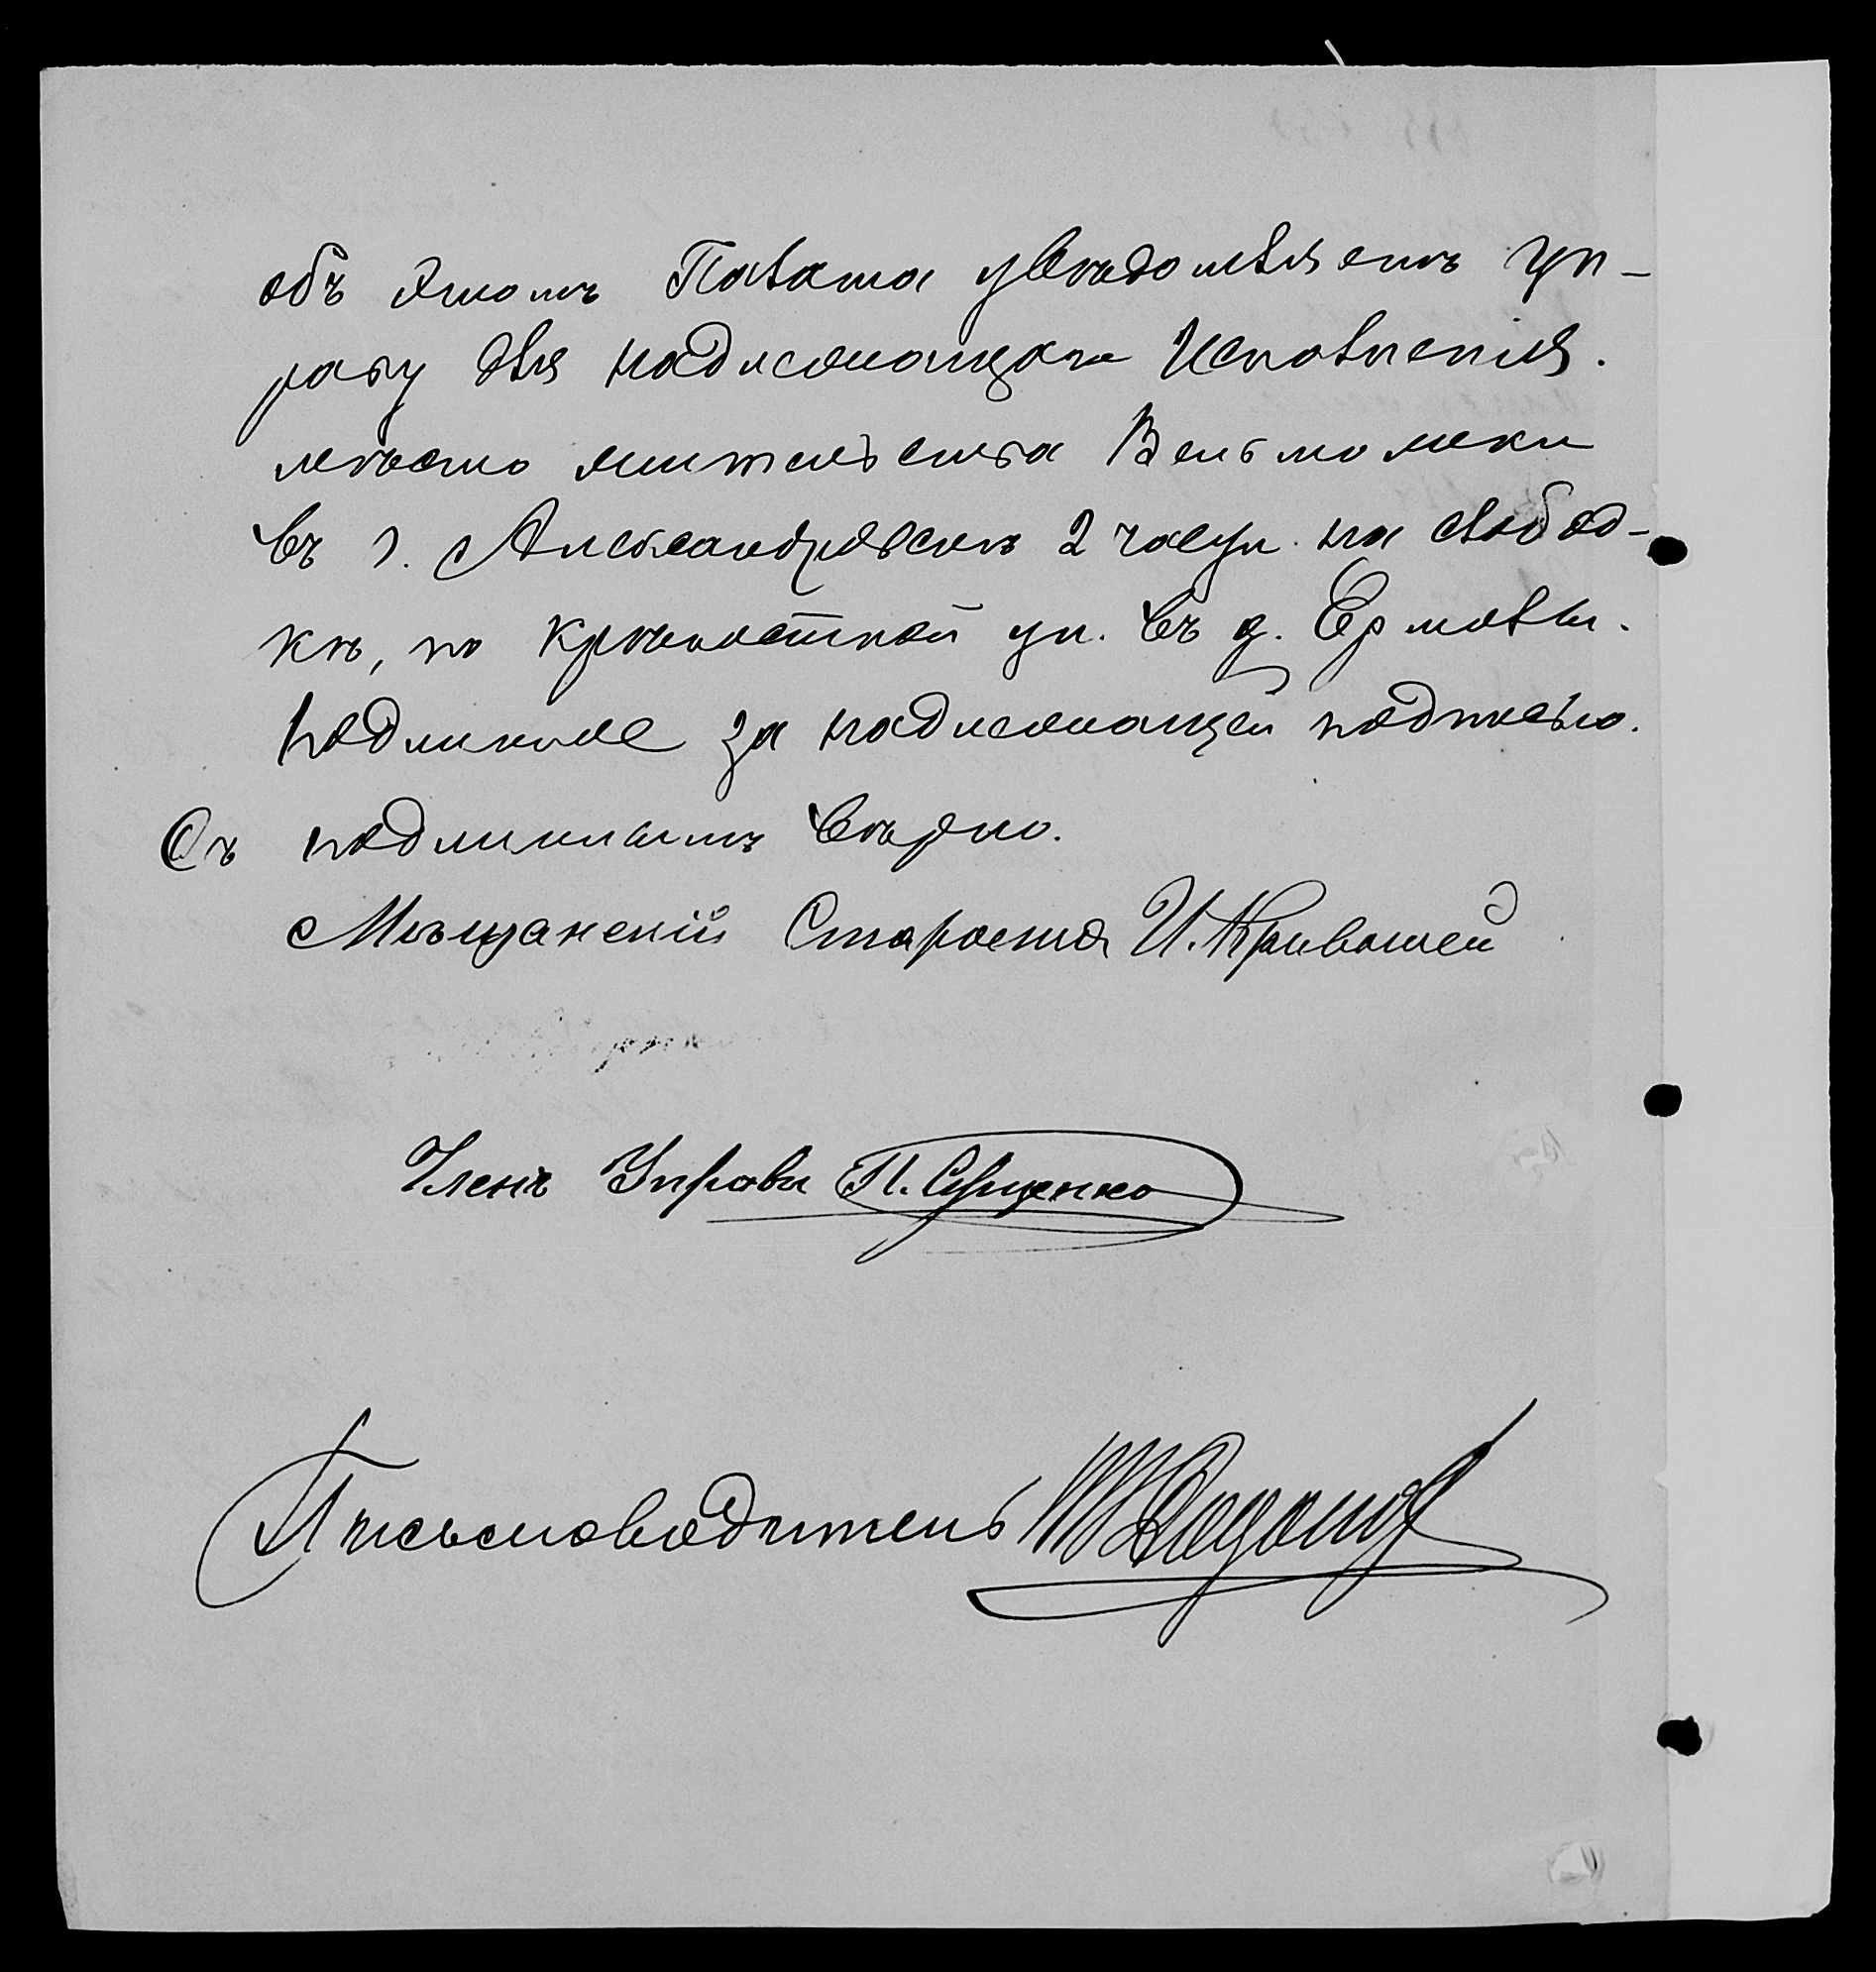 объ этомъ Палата увѣдомляетъ Уп-
раву для надлежащаго Исполненія.
мѣсто жительства Вельможки
въ г. Александровскѣ 2 части на слобод-
кѣ, по Крѣпостной ул. въ д. Ермолы.
Подлинное за надлежащей подписью.
Съ подлиннымъ вѣрно.
Мѣщанскій Староста И. Кривошей
Членъ Управы П. Сущенко
Письмоводитель